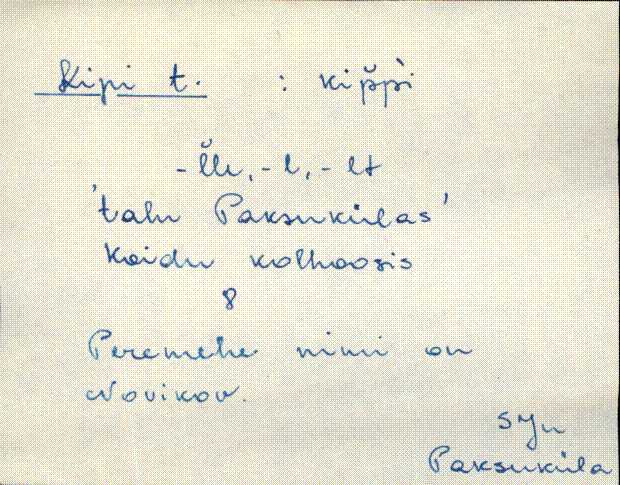 Kipi t. : kip̌pì
-l̆le, -l, -lt
'talu Paksukülas'
Koidu kolhoosis
8
Peremehe nimi on
Novikov.
Syn
Paksuküla